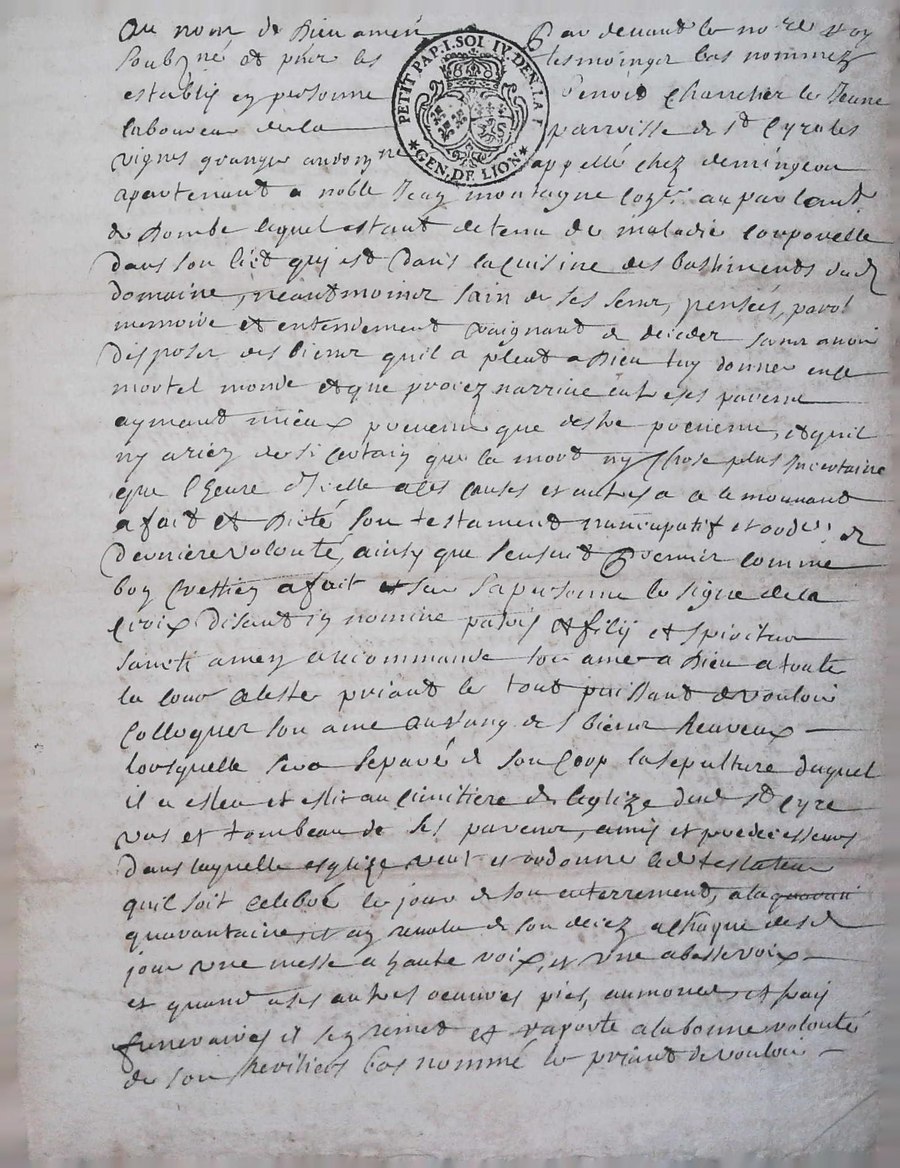 Au nom de Dieu amen Par devant le no.re Roy
Soubzné et pñts les tesmoingz bas nommez
establiy en personne Benoist Charcher le Jeune
laboureur de la parroisse de St Cyre les
vignes granger au domayne appellé chez demingeon
apartenant a noble Jean montagne con.er au parlemt
de Dombe lequel estant detenu de maladie corporelle
dans son lict qui est dans la cuisine des bastiments dud
domaine, neantmoins sain de ses sens, pensées, parol
memoire et entendement craignant de deceder sans avoir
disposer des biens quil a pleut a Dieu luy donner en ce
mortel monde et que procez narrive entre ses parens
aymant mieux prevenir que destre prevenu, et quil
ny a riez de si certain que la mort ny chose plus incertaine
que lheure dicelle a ces causes et autres a ce le mouvant
a fait et dicté son testament nuncupatif et ordre de
derniere volonté, ainsy que sensuit Premier comme
bon chrestien a fait sur sa personne le signe de la
Croix disant in nomine patris et filij et spiritus
sancti amen a recommande son ame a Dieu a toute
la cour celeste priant le tout puissant de vouloir
Colloquer son ame au rang des bien heureux
lorsquelle sera separé de son corp la sepulture duquel
il a esleu et eslit au cimitiere de leglize dud St Cyre
vas et tombeau de ses parens, amis et predecesseurs
dans laquelle esglize veut et ordonne led testateur
quil soit celebré le jour de son enterrement, a la quaran
quarantaine, et au revolu de son decez a chaque desd
jour une messe a haute voix, et une a basse voix
et quand a ses autres oeuvres pies, aumones et frais
funeraires il sen remet et raporte a la bonne volonté
de son heritiers bas nommé le priant de vouloir
PETIT PAP. I. SOL IV. DEN. LA F.
GEN. DE LION